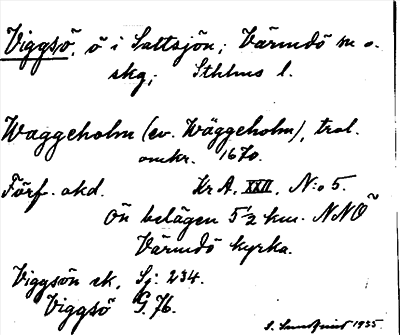 Viggsö, ö i Saltsjön; Värmdö m o.
skg; Sthlms l.
Waggeholm (ev. Wäggeholm), trol.
omkr. 1670.
Förf. okd. Kr A, XXII, N:o 5.
Ön belägen 5 1/2 km. NNÖ
Värmdö kyrka.
Viggsön ek, Sj. 234.
Viggsö G. 76.
S. 1935